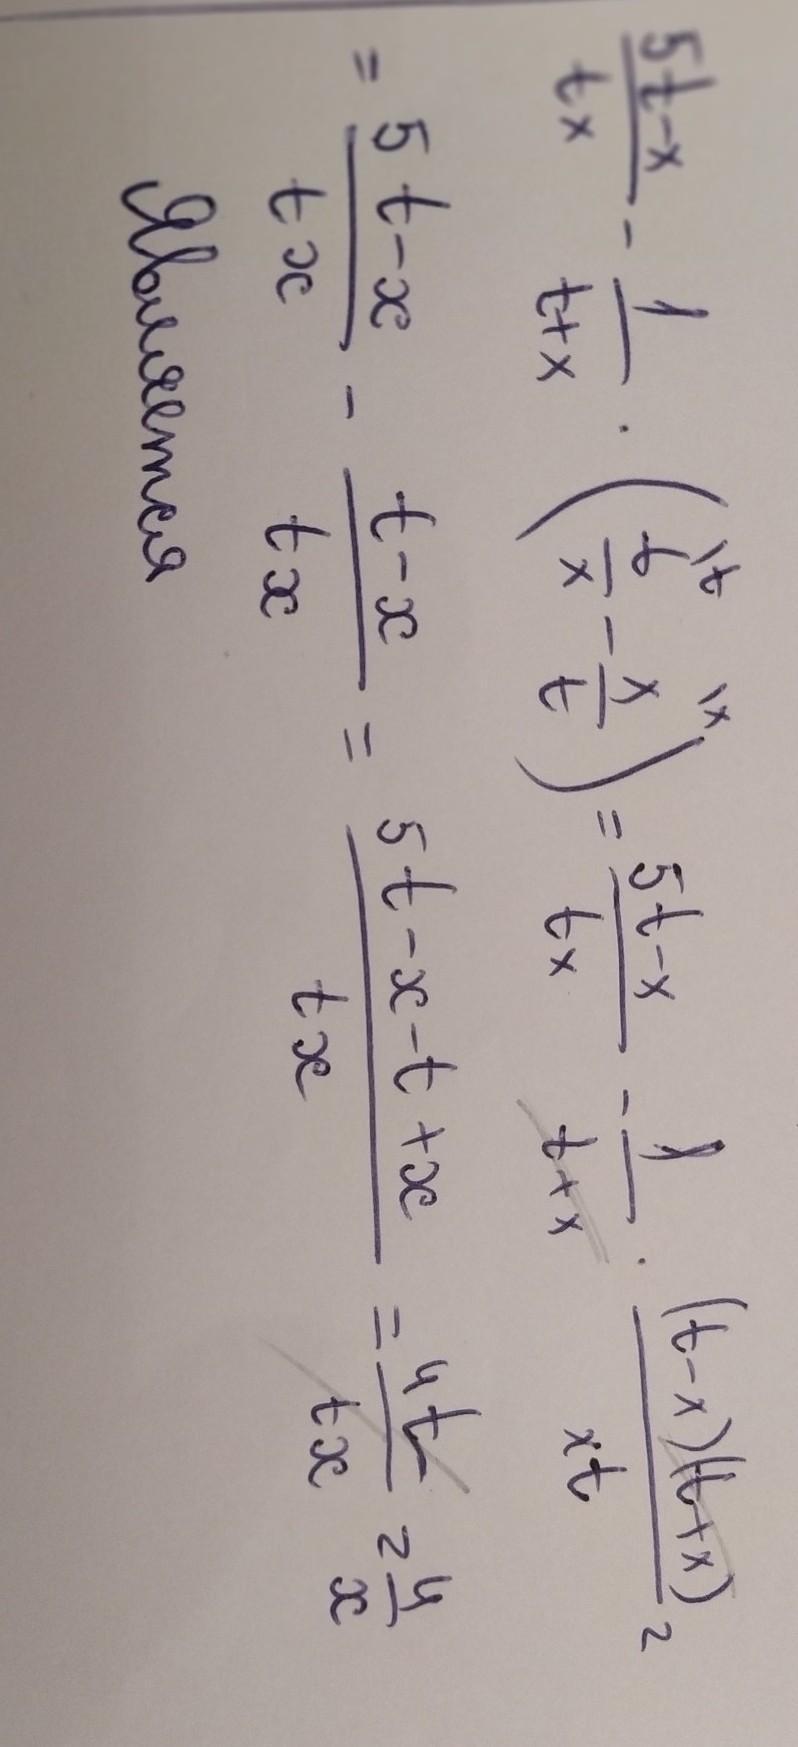 \frac{5t-x}{tx} - \frac{1}{t+x} \cdot \left( \frac{t}{x}^{\backslash t} - \frac{x}{t}^{\backslash x} \right) = \frac{5t-x}{tx} - \frac{1}{t+x} \cdot \frac{(t-x)(t+x)}{xt} =
= \frac{5t-x}{tx} - \frac{t-x}{tx} = \frac{5t-x-t+x}{tx} = \frac{4t}{tx} = \frac{4}{x}
Является